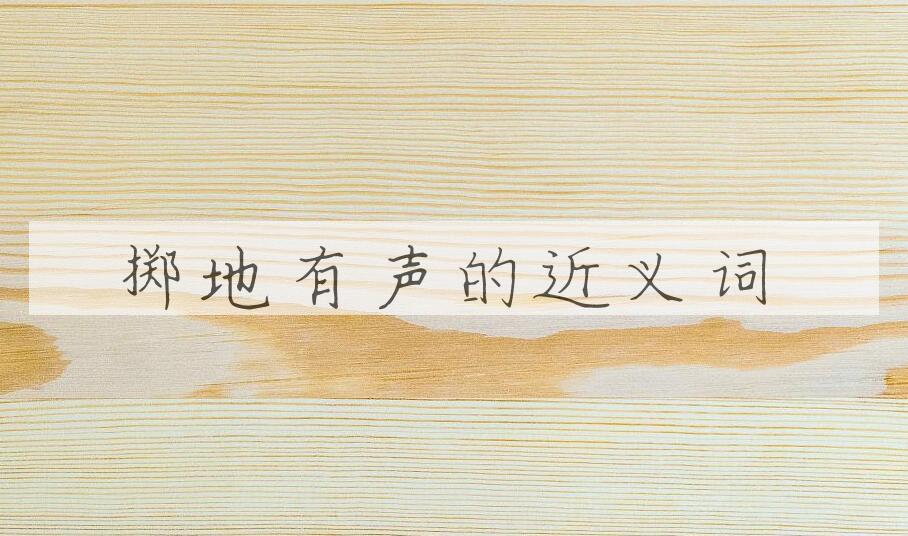 掷地有声的近义词